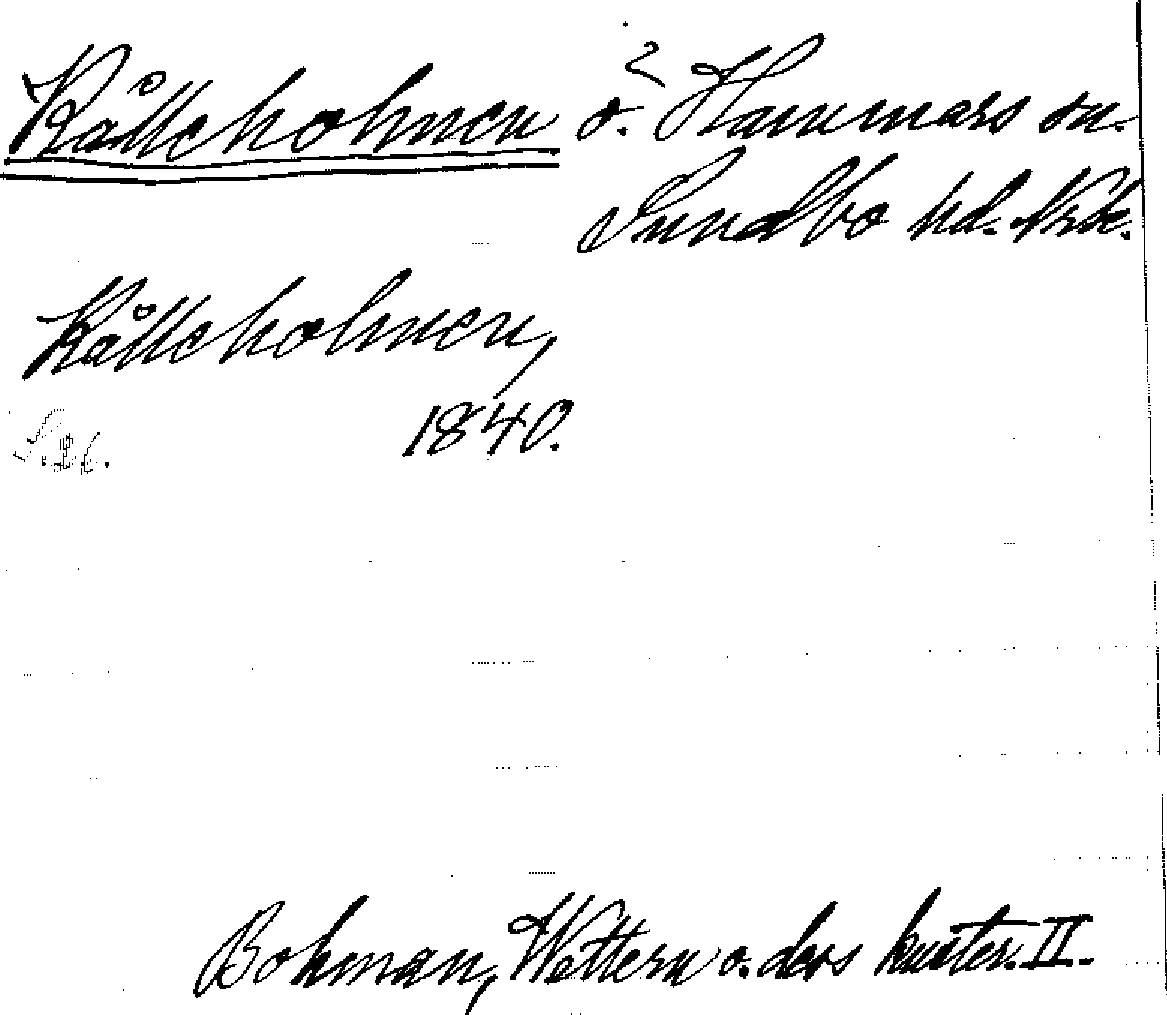 Kålleholmen ö. ? Hammars sn.
Sundbo hd. Nke.
Kålleholmen,
1840.
Bohman, Wettern o. dess kuster. II.